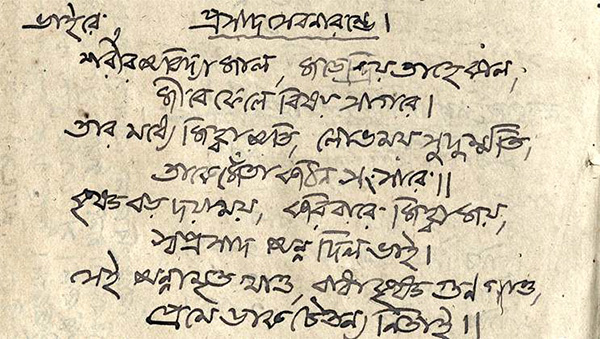 ভাইরে, প্রসাদসেবনারম্ভে।
শরীর অবিদ্যা জাল, জড়েন্দ্রিয় তাহে কাল,
জীবে ফেলে বিষয় সাগরে।
তার মধ্যে জিহ্বা অতি, লোভময় সুদুর্ম্মতি,
তাকে জেঁতা কঠিন সংসারে॥
কৃষ্ণ বড় দয়াময়, করিবারে জিহ্বা জয়,
স্বপ্রসাদ অন্ন দিল ভাই।
সেই অন্নামৃত খাও, রাধাকৃষ্ণ গুন গাও,
প্রেমে ডাক চৈতন্য নিতাই॥